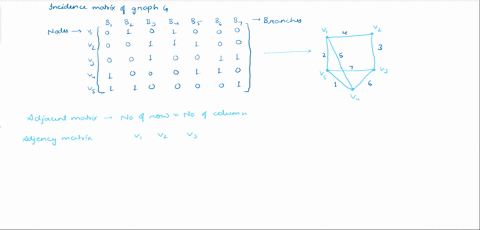 Incidence matrix of graph G
B1 B2 B3 B4 B5 B6 B7 → Branches
Nodes → V1 0 1 0 1 0 0 0
V2 0 0 1 1 1 0 0
V3 0 0 1 0 0 1 1
V4 1 0 0 0 1 1 0
V5 1 1 0 0 0 0 1
V1 4 V2
2 5 3
7
V5 V3
1 6
V4
Adjacent matrix → No of row = No of column
Adjency matrix V1 V2 V3